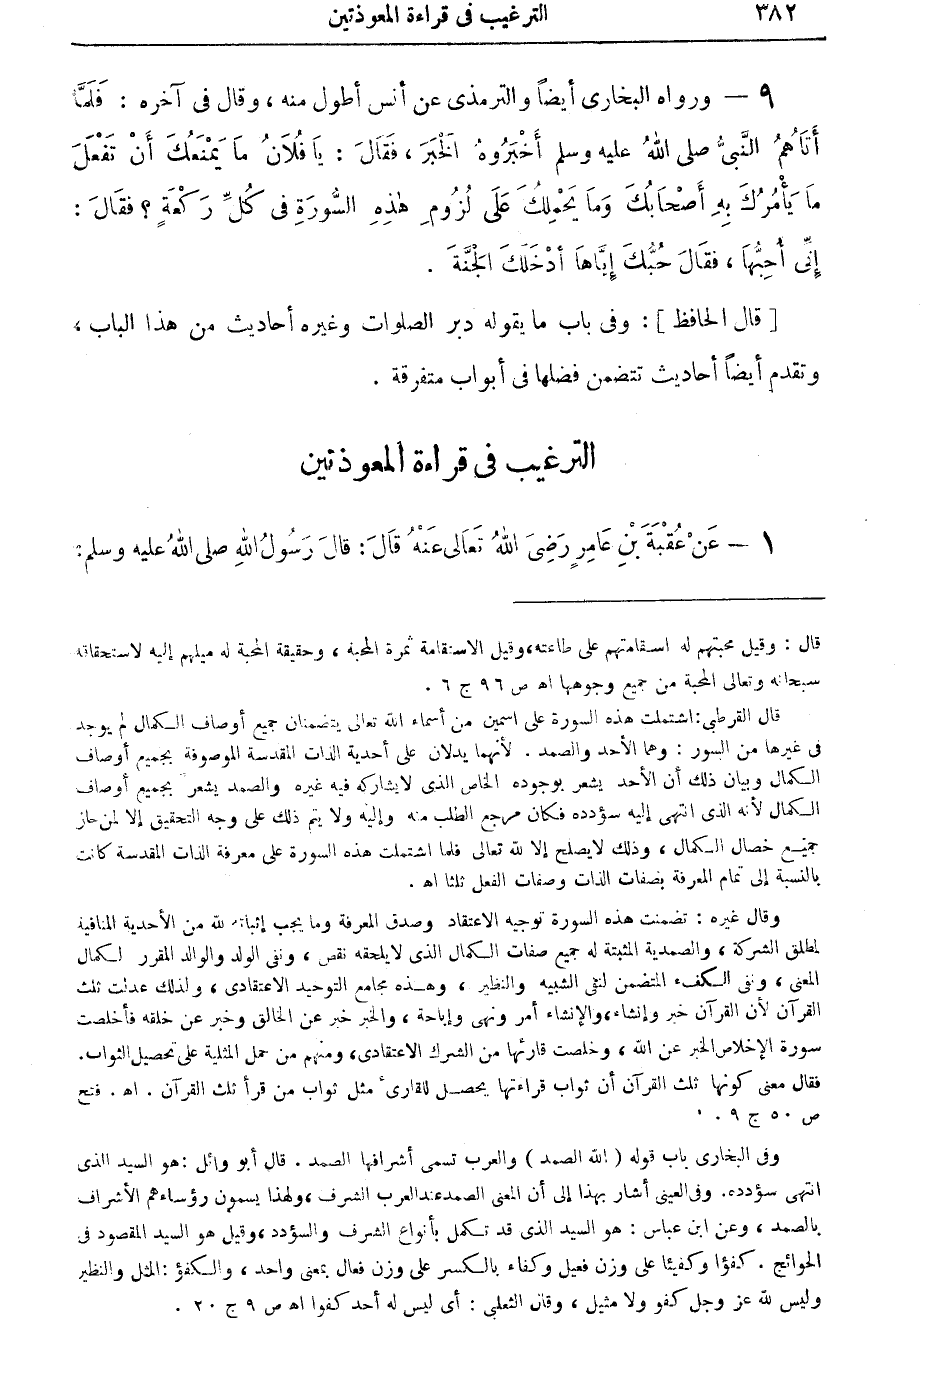 ٣٨٢
الترغيب فى قراءة المعوذتين
٩ — ورواه البخارى أيضاً والترمذى عن أنس أطول منه ، وقال فى آخره : فَلَمَّا
أَتَاهُمُ النَّبِيُّ صلى اللهُ عليه وسلم أَخْبَرُوهُ الْخَبَرَ ، فَقَالَ : يا فُلَانُ ما يَمْنَعُكَ أَنْ تَفْعَلَ
ما يَأْمُرُكَ بِهِ أَصْحَابُكَ وَمَا يَحْمِلُكَ عَلَى لُزُومِ هٰذِهِ السُّورَةِ فى كُلِّ رَكْعَةٍ ؟ فقَالَ :
إِنِّى أُحِبُّهَا ، فقَالَ حُبُّكَ إِيَّاهَا أَدْخَلَكَ الْجَنَّةَ .
[ قال الحافظ ] : وفى باب ما يقوله دبر الصلوات وغيره أحاديث من هذا الباب ،
وتقدم أيضاً أحاديث تتضمن فضلها فى أبواب متفرقة .
الترغيب فى قراءة المعوذتين
١ — عَنْ عُقْبَةَ بْنِ عَامِرٍ رَضِىَ اللهُ تَعَالى عَنْهُ قَالَ : قالَ رَسُولُ اللهِ صلى اللهُ عليه وسلم :
قال : وقيل محبتهم له استقامتهم على طاعته ، وقيل الاستقامة ثمرة المحبة ، وحقيقة المحبة له ميلهم إليه لاستحقاقه
سبحانه وتعالى المحبة من جميع وجوهها اه ص ٩٦ ج ٦ .
قال القرطبى : اشتملت هذه السورة على اسمين من أسماء الله تعالى يتضمنان جميع أوصاف الكمال لم يوجد
فى غيرها من السور : وهما الأحد والصمد . لأنهما يدلان على أحدية الذات المقدسة الموصوفة بجميع أوصاف
الكمال وبيان ذلك أن الأحد يشعر بوجوده الخاص الذى لايشاركه فيه غيره والصمد يشعر بجميع أوصاف
الكمال لأنه الذى انتهى إليه سؤدده فكان مرجع الطلب منه وإليه ولا يتم ذلك على وجه التحقيق إلا لمن حاز
جميع خصال الكمال ، وذلك لايصلح إلا لله تعالى فلما اشتملت هذه السورة على معرفة الذات المقدسة كانت
بالنسبة إلى تمام المعرفة بصفات الذات وصفات الفعل ثلثا اه .
وقال غيره : تضمنت هذه السورة توجيه الاعتقاد وصدق المعرفة وما يجب إثباته لله من الأحدية المنافية
لمطلق الشركة ، والصمدية المثبتة له جميع صفات الكمال الذى لايلحقه نقص ، ونفى الولد والوالد المقرر لكمال
المعنى ، ونفى الكفء المتضمن لنفى الشبيه والنظير ، وهذه مجامع التوحيد الاعتقادى ، ولذلك عدلت ثلث
القرآن لأن القرآن خبر وإنشاء ، والإنشاء أمر ونهى وإباحة ، والخبر خبر عن الخالق وخبر عن خلقه فأخلصت
سورة الإخلاص الخبر عن الله ، وخلصت قارئها من الشرك الاعتقادى ، ومنهم من حمل المثلية على تحصيل الثواب .
فقال معنى كونها ثلث القرآن أن ثواب قراءتها يحصل للقارئ مثل ثواب من قرأ ثلث القرآن . اه . فتح
ص ٥٠ ج ٩ .
وفى البخارى باب قوله ( الله الصمد ) والعرب تسمى أشرافها الصمد . قال أبو وائل : هو السيد الذى
انتهى سؤدده . وفى العينى أشار بهذا إلى أن المعنى الصمد عند العرب الشرف ، ولهذا يسمون رؤساءهم الأشراف
بالصمد ، وعن ابن عباس : هو السيد الذى قد تكمل بأنواع الشرف والسؤدد ، وقيل هو السيد المقصود فى
الحوائج . كفؤا وكفيئا على وزن فعيل وكفاء بالكسر على وزن فعال بمعنى واحد ، والكفؤ : المثل والنظير
وليس لله عز وجل كفو ولا مثيل ، وقال الثعلبى : أى ليس له أحد كفوا اه ص ٩ ج ٢٠ .